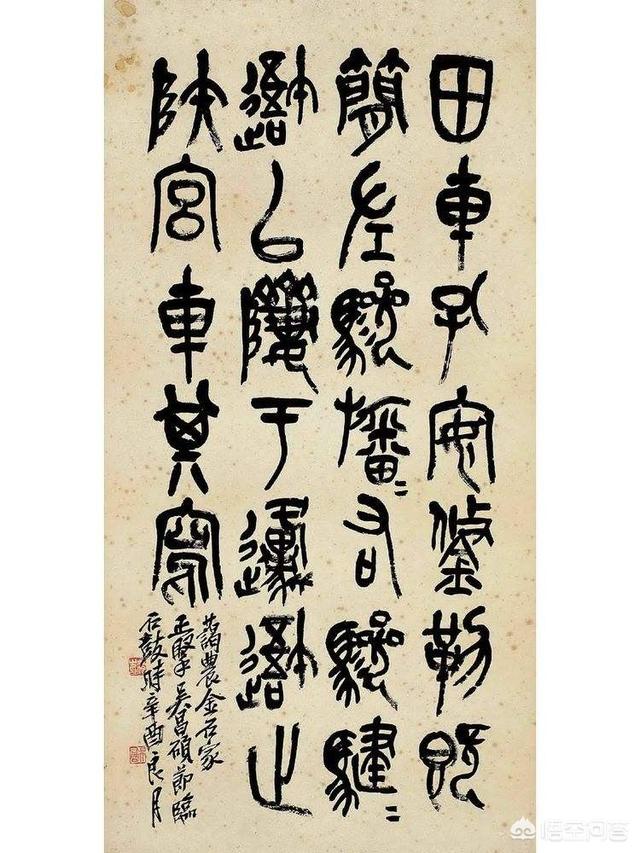 田車孔安鋚勒既
簡左驂旛〻右驂騝〻
䢒以隮于邍䢒止
陝宮車其寫
藹農金石家
正吳昌碩節臨
石鼓時辛酉良月
悟空问答